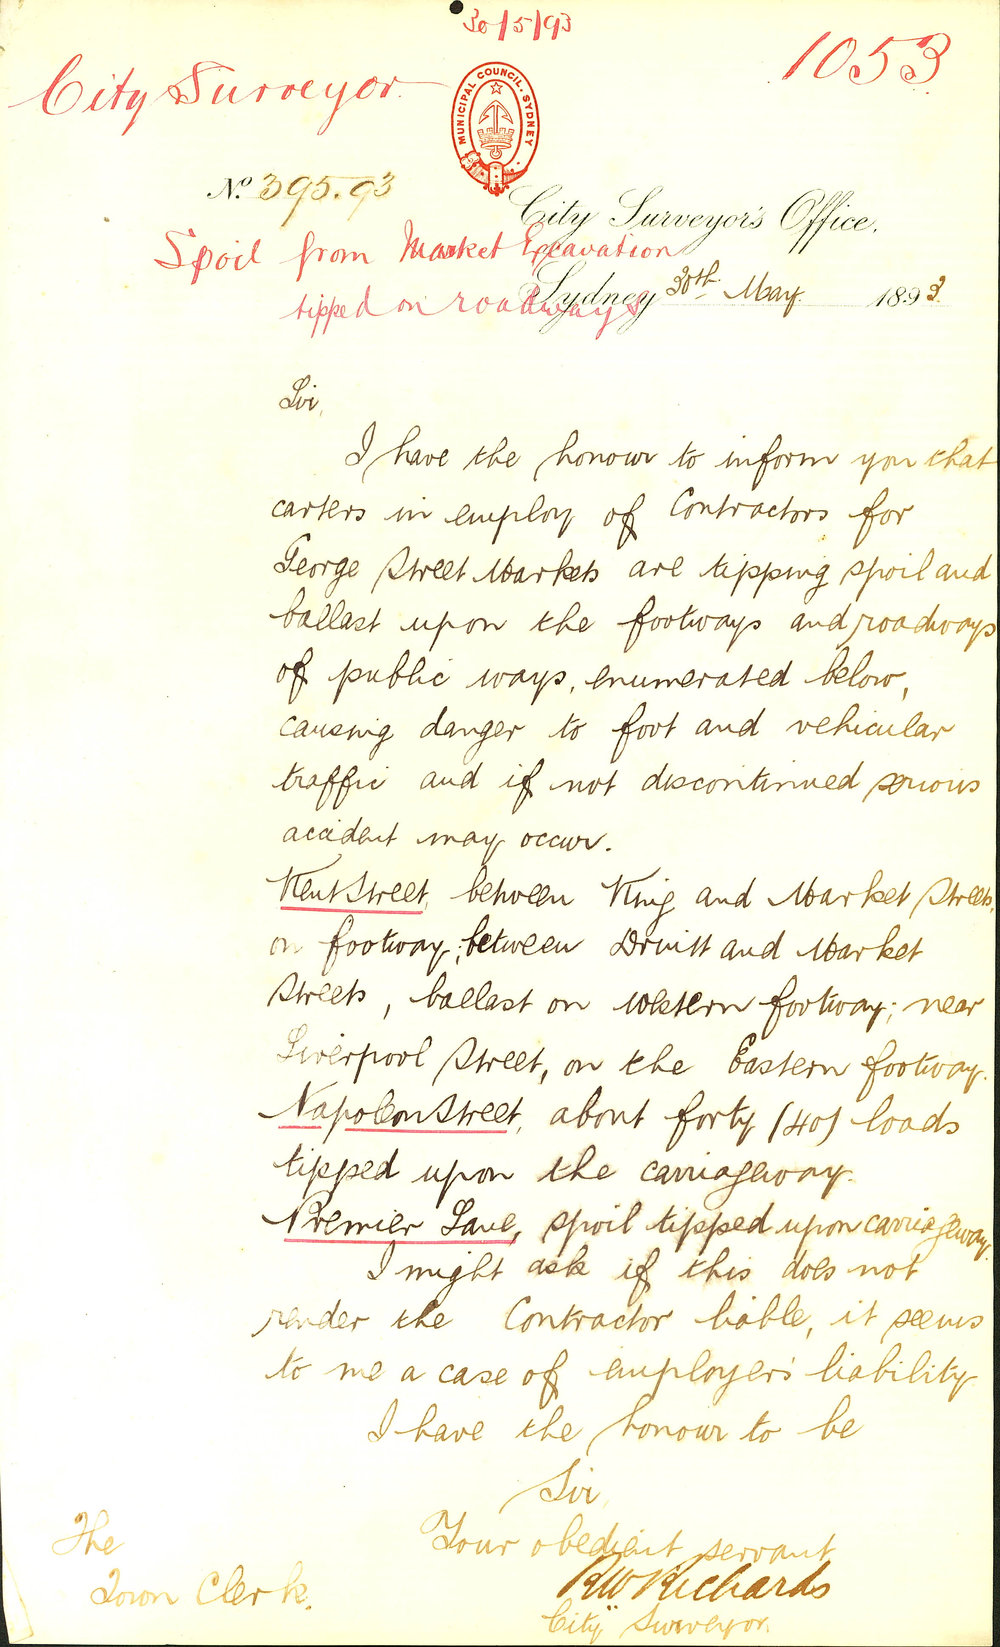 30/5/93
1053
City Surveyor
MUNICIPAL COUNCIL. SYDNEY
No. 395.93
City Surveyor's Office,
Spoil from Market Excavation
Sydney 30th May 1893
tipped on roadways
Sir,
I have the honour to inform you that
carters in employ of Contractors for
George Street Markets are tipping spoil and
ballast upon the footways and roadways
of public ways, enumerated below,
causing danger to foot and vehicular
traffic and if not discontinued serious
accident may occur.
Kent Street, between King and Market Streets,
on footway; between Druitt and Market
Streets, ballast on Western footway; near
Liverpool Street, on the Eastern footway.
Napoleon Street, about forty (40) loads
tipped upon the carriageway.
Premier Lane, spoil tipped upon carriageway.
I might ask if this does not
render the Contractor liable, it seems
to me a case of employer's liability
I have the honour to be
Sir
Your obedient servant
RW Richards
City Surveyor.
The
Town Clerk.